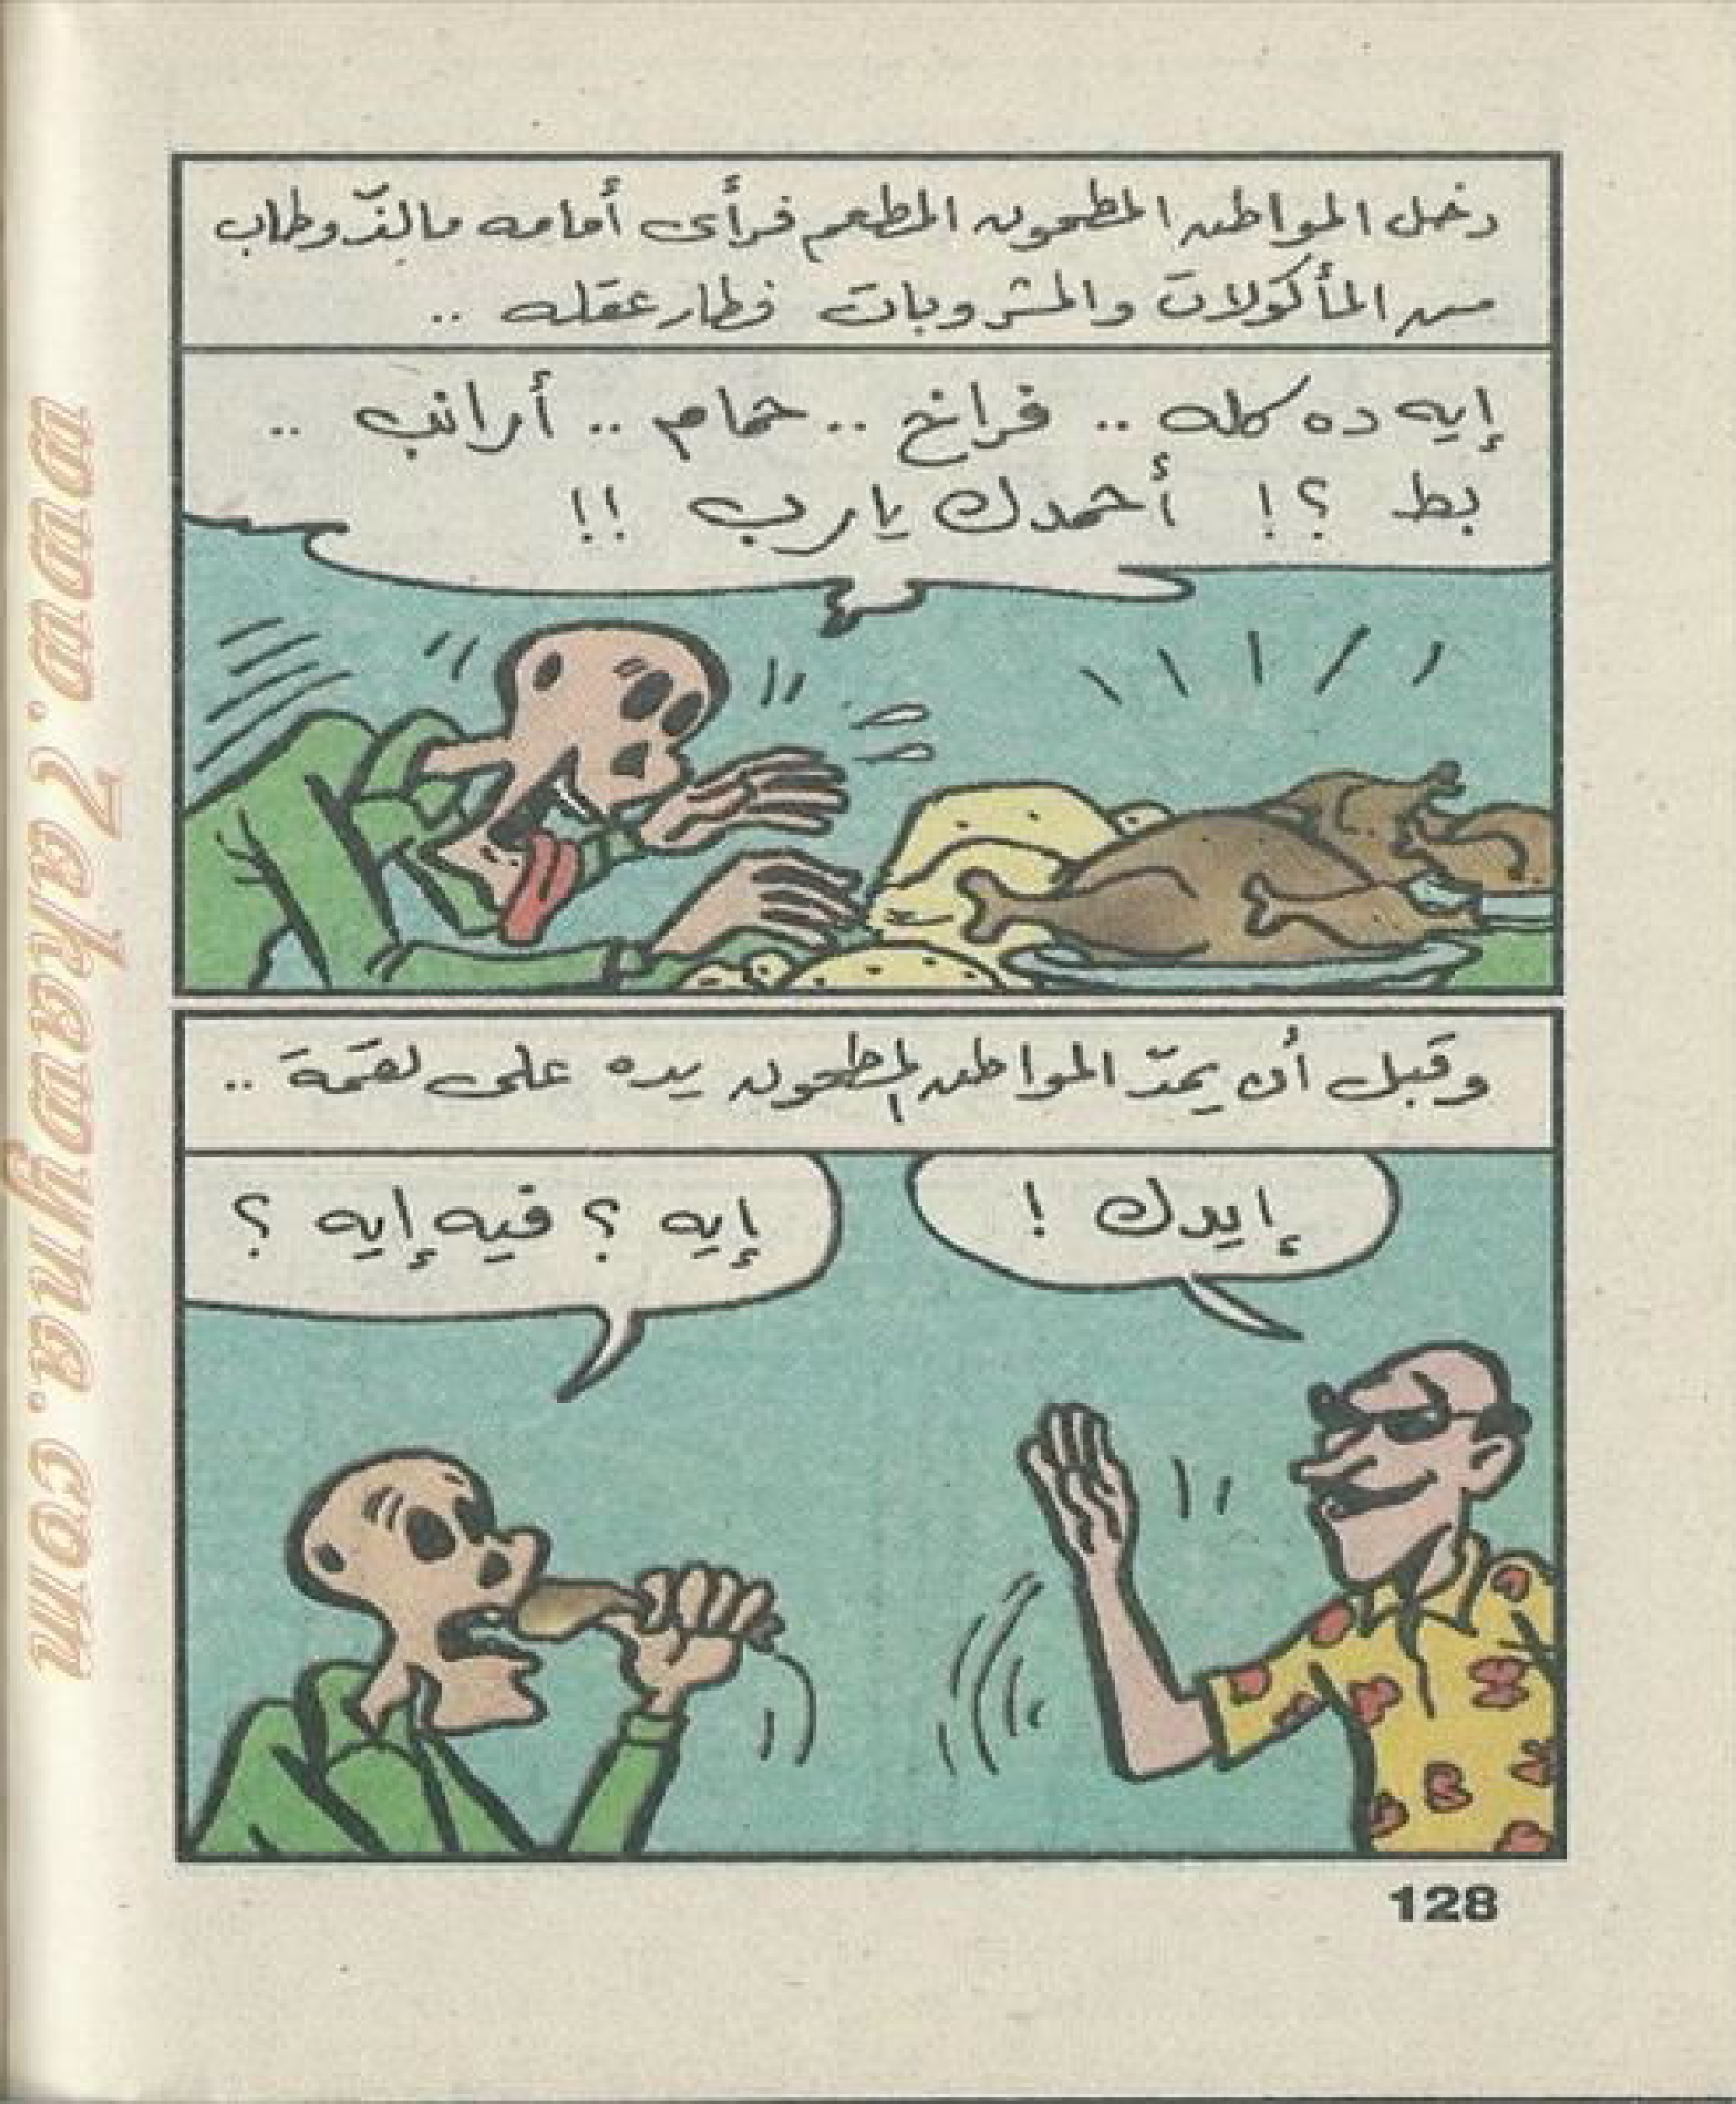 دخل المواطن المطحون المطعم فرأى أمامه مالذّ وطاب
من المأكولات والمشروبات فطار عقله ..
إيه ده كله .. فراخ .. حمام .. أرانب ..
بط ؟! أحمدك يارب !!
وقبل أن يمدّ المواطن المطحون يده على لقمة ..
إيدك !
إيه ؟ فيه إيه ؟
128
ana.7akawyna.com